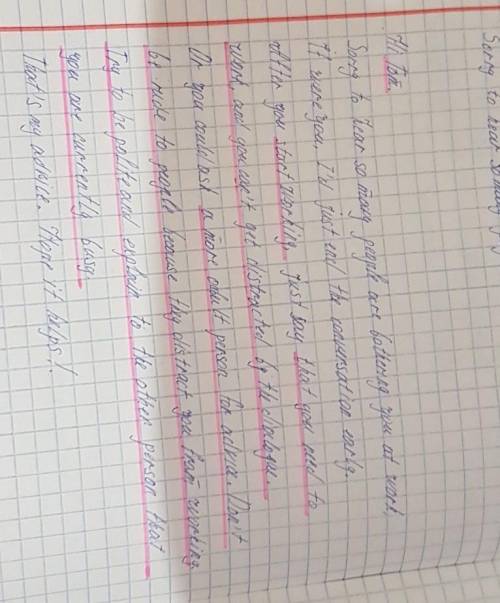 Sorry to hear so many
Hi Tom.
Sorry to hear so many people are bothering you at work,
If I were you, I'd just end the conversation early.
After you start working just say that you need to
work, and you can't get distracted by the dialogue.
Or you could ask a more adult person for advice. Don't
be rude to people because they distract you from working.
Try to be polite and explain to the other person that
you are currently busy.
That's my advice. Hope it helps!!